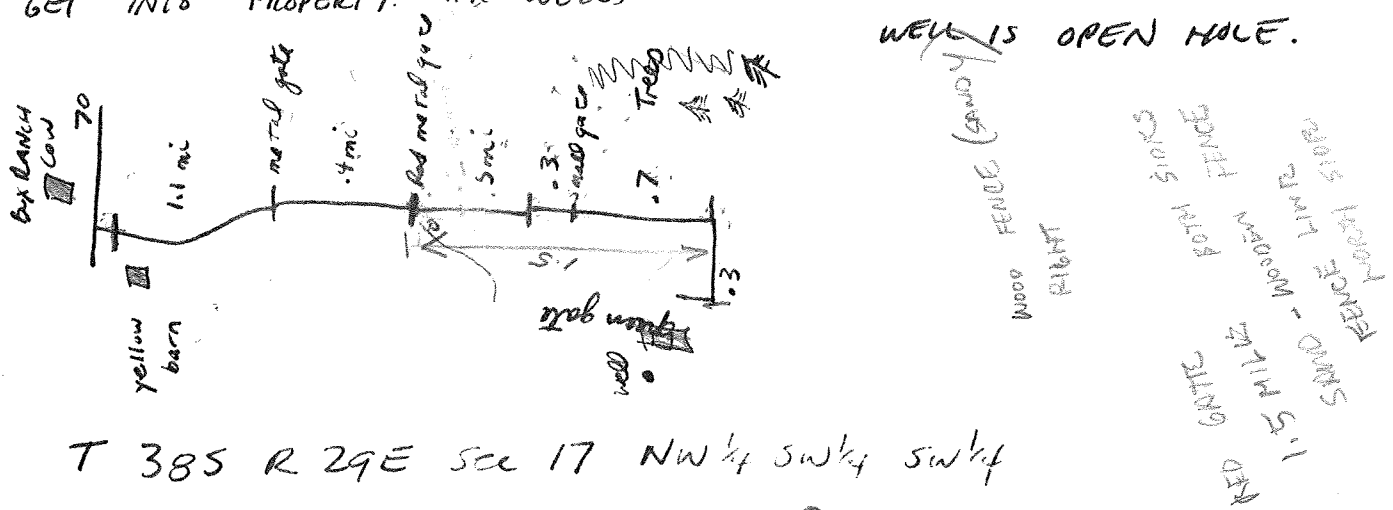 GET INTO PROPERTY.
WELL IS OPEN HOLE.
BUX RANCH
COW
70
1.1 mi
metal gate
.4 mi
Red metal gate
.5 mi
.3
small gate
.7
Trees
1.5
.3
yellow
barn
green gate
well
WOOD FENCE (SANDY)
RIGHT
BOTH SIDES
FENCE
RED GATE
1.5 MILE
SAND - WOODEN LIMIT
FENCE NORTH SIDE
T 38S R 29E Sec 17 NW 1/4 SW 1/4 SW 1/4